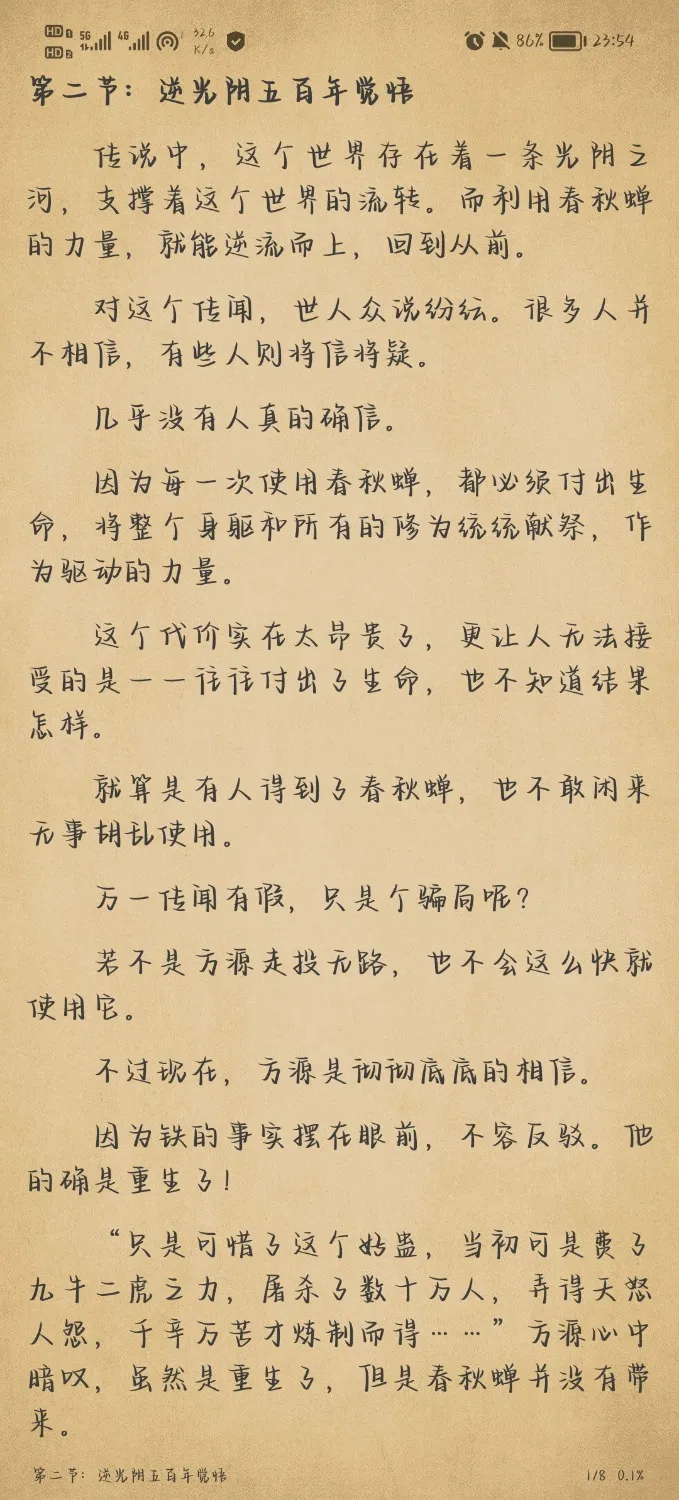 HD1 5G 4G 32.6 86% 23:54
HD2 K/s
第二节：逆光阴五百年觉悟
传说中，这个世界存在着一条光阴之
河，支撑着这个世界的流转。而利用春秋蝉
的力量，就能逆流而上，回到从前。
对这个传闻，世人众说纷纭。很多人并
不相信，有些人则将信将疑。
几乎没有人真的确信。
因为每一次使用春秋蝉，都必须付出生
命，将整个身躯和所有的修为统统献祭，作
为驱动的力量。
这个代价实在太昂贵了，更让人无法接
受的是——往往付出了生命，也不知道结果
怎样。
就算是有人得到了春秋蝉，也不敢闲来
无事胡乱使用。
万一传闻有假，只是个骗局呢？
若不是方源走投无路，也不会这么快就
使用它。
不过现在，方源是彻彻底底的相信。
因为铁的事实摆在眼前，不容反驳。他
的确是重生了！
“只是可惜了这个好蛊，当初可是费了
九牛二虎之力，屠杀了数十万人，弄得天怒
人怨，千辛万苦才炼制而得……”方源心中
暗叹，虽然是重生了，但是春秋蝉并没有带
来。
第二节：逆光阴五百年觉悟 1/8 0.1%